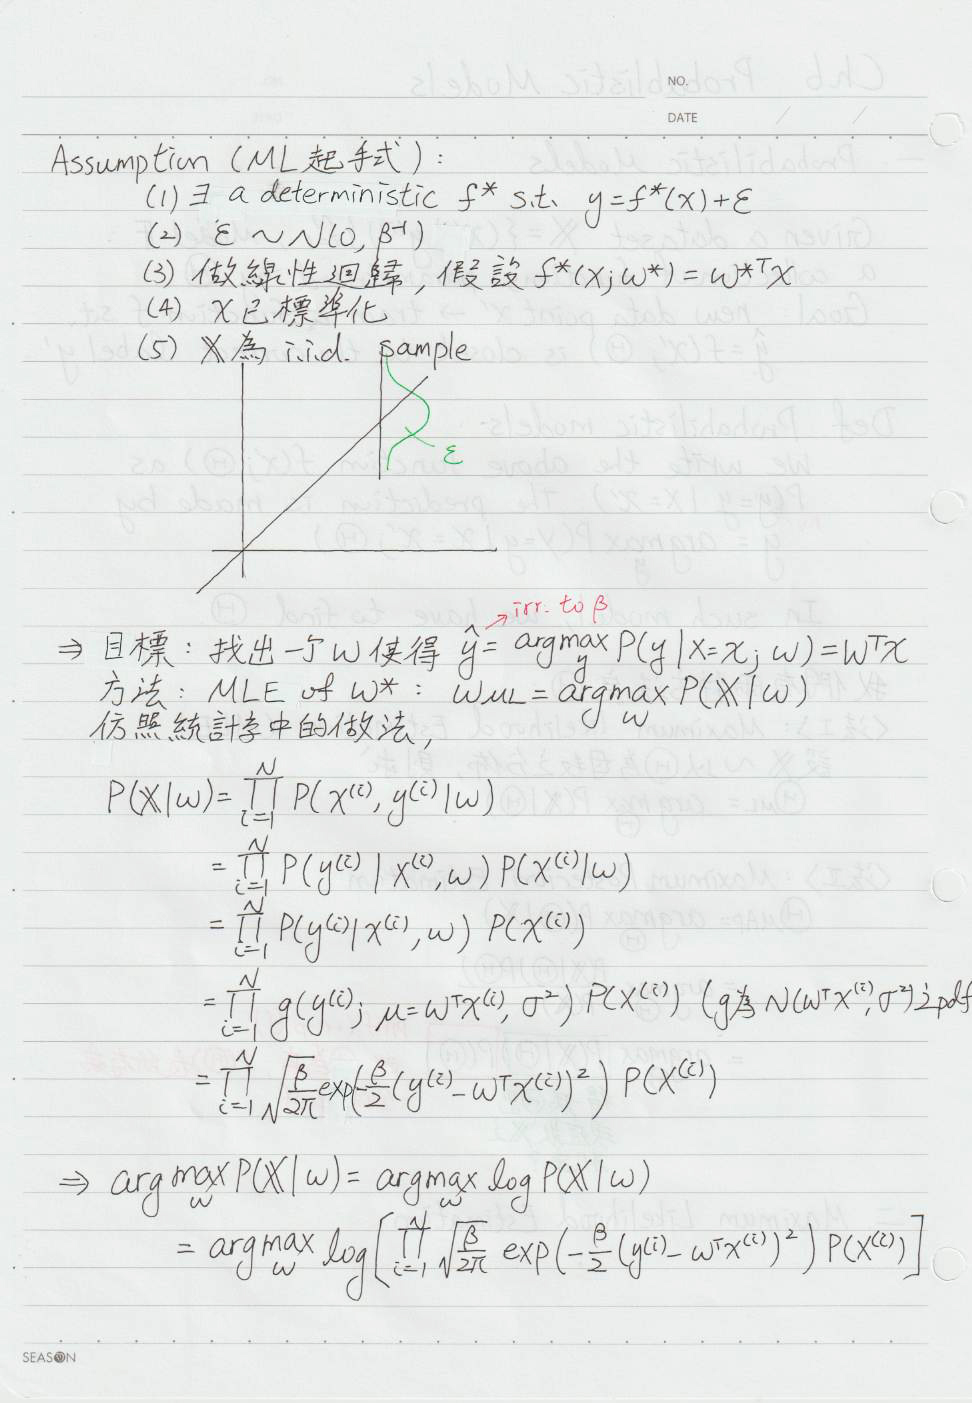 NO.
DATE
Assumption (ML起手式):
(1) ∃ a deterministic f* s.t. y=f*(x)+ε
(2) ε ~ N(0, β⁻¹)
(3) 做線性迴歸, 假設 f*(x;w*)=w*ᵀx
(4) x已標準化
(5) 𝕏為i.i.d. sample
ε
irr. to β
⇒ 目標: 找出一个w使得 ŷ= argmax_y P(y|x=x; w)=wᵀx
方法: MLE of w*: w_ML=argmax_w P(𝕏|w)
仿照統計學中的做法,
P(𝕏|w)=∏_{i=1}^N P(x⁽ⁱ⁾, y⁽ⁱ⁾|w)
=∏_{i=1}^N P(y⁽ⁱ⁾|x⁽ⁱ⁾, w) P(x⁽ⁱ⁾|w)
=∏_{i=1}^N P(y⁽ⁱ⁾|x⁽ⁱ⁾, w) P(x⁽ⁱ⁾)
=∏_{i=1}^N g(y⁽ⁱ⁾; μ=wᵀx⁽ⁱ⁾, σ²) P(x⁽ⁱ⁾) (g為N(wᵀx⁽ⁱ⁾, σ²)之pdf
=∏_{i=1}^N √(β/2π) exp(-β/2 (y⁽ⁱ⁾-wᵀx⁽ⁱ⁾)²) P(x⁽ⁱ⁾)
⇒ argmax_w P(𝕏|w)= argmax_w log P(𝕏|w)
= argmax_w log[∏_{i=1}^N √(β/2π) exp(-β/2 (y⁽ⁱ⁾-wᵀx⁽ⁱ⁾)²) P(x⁽ⁱ⁾)]
SEASON